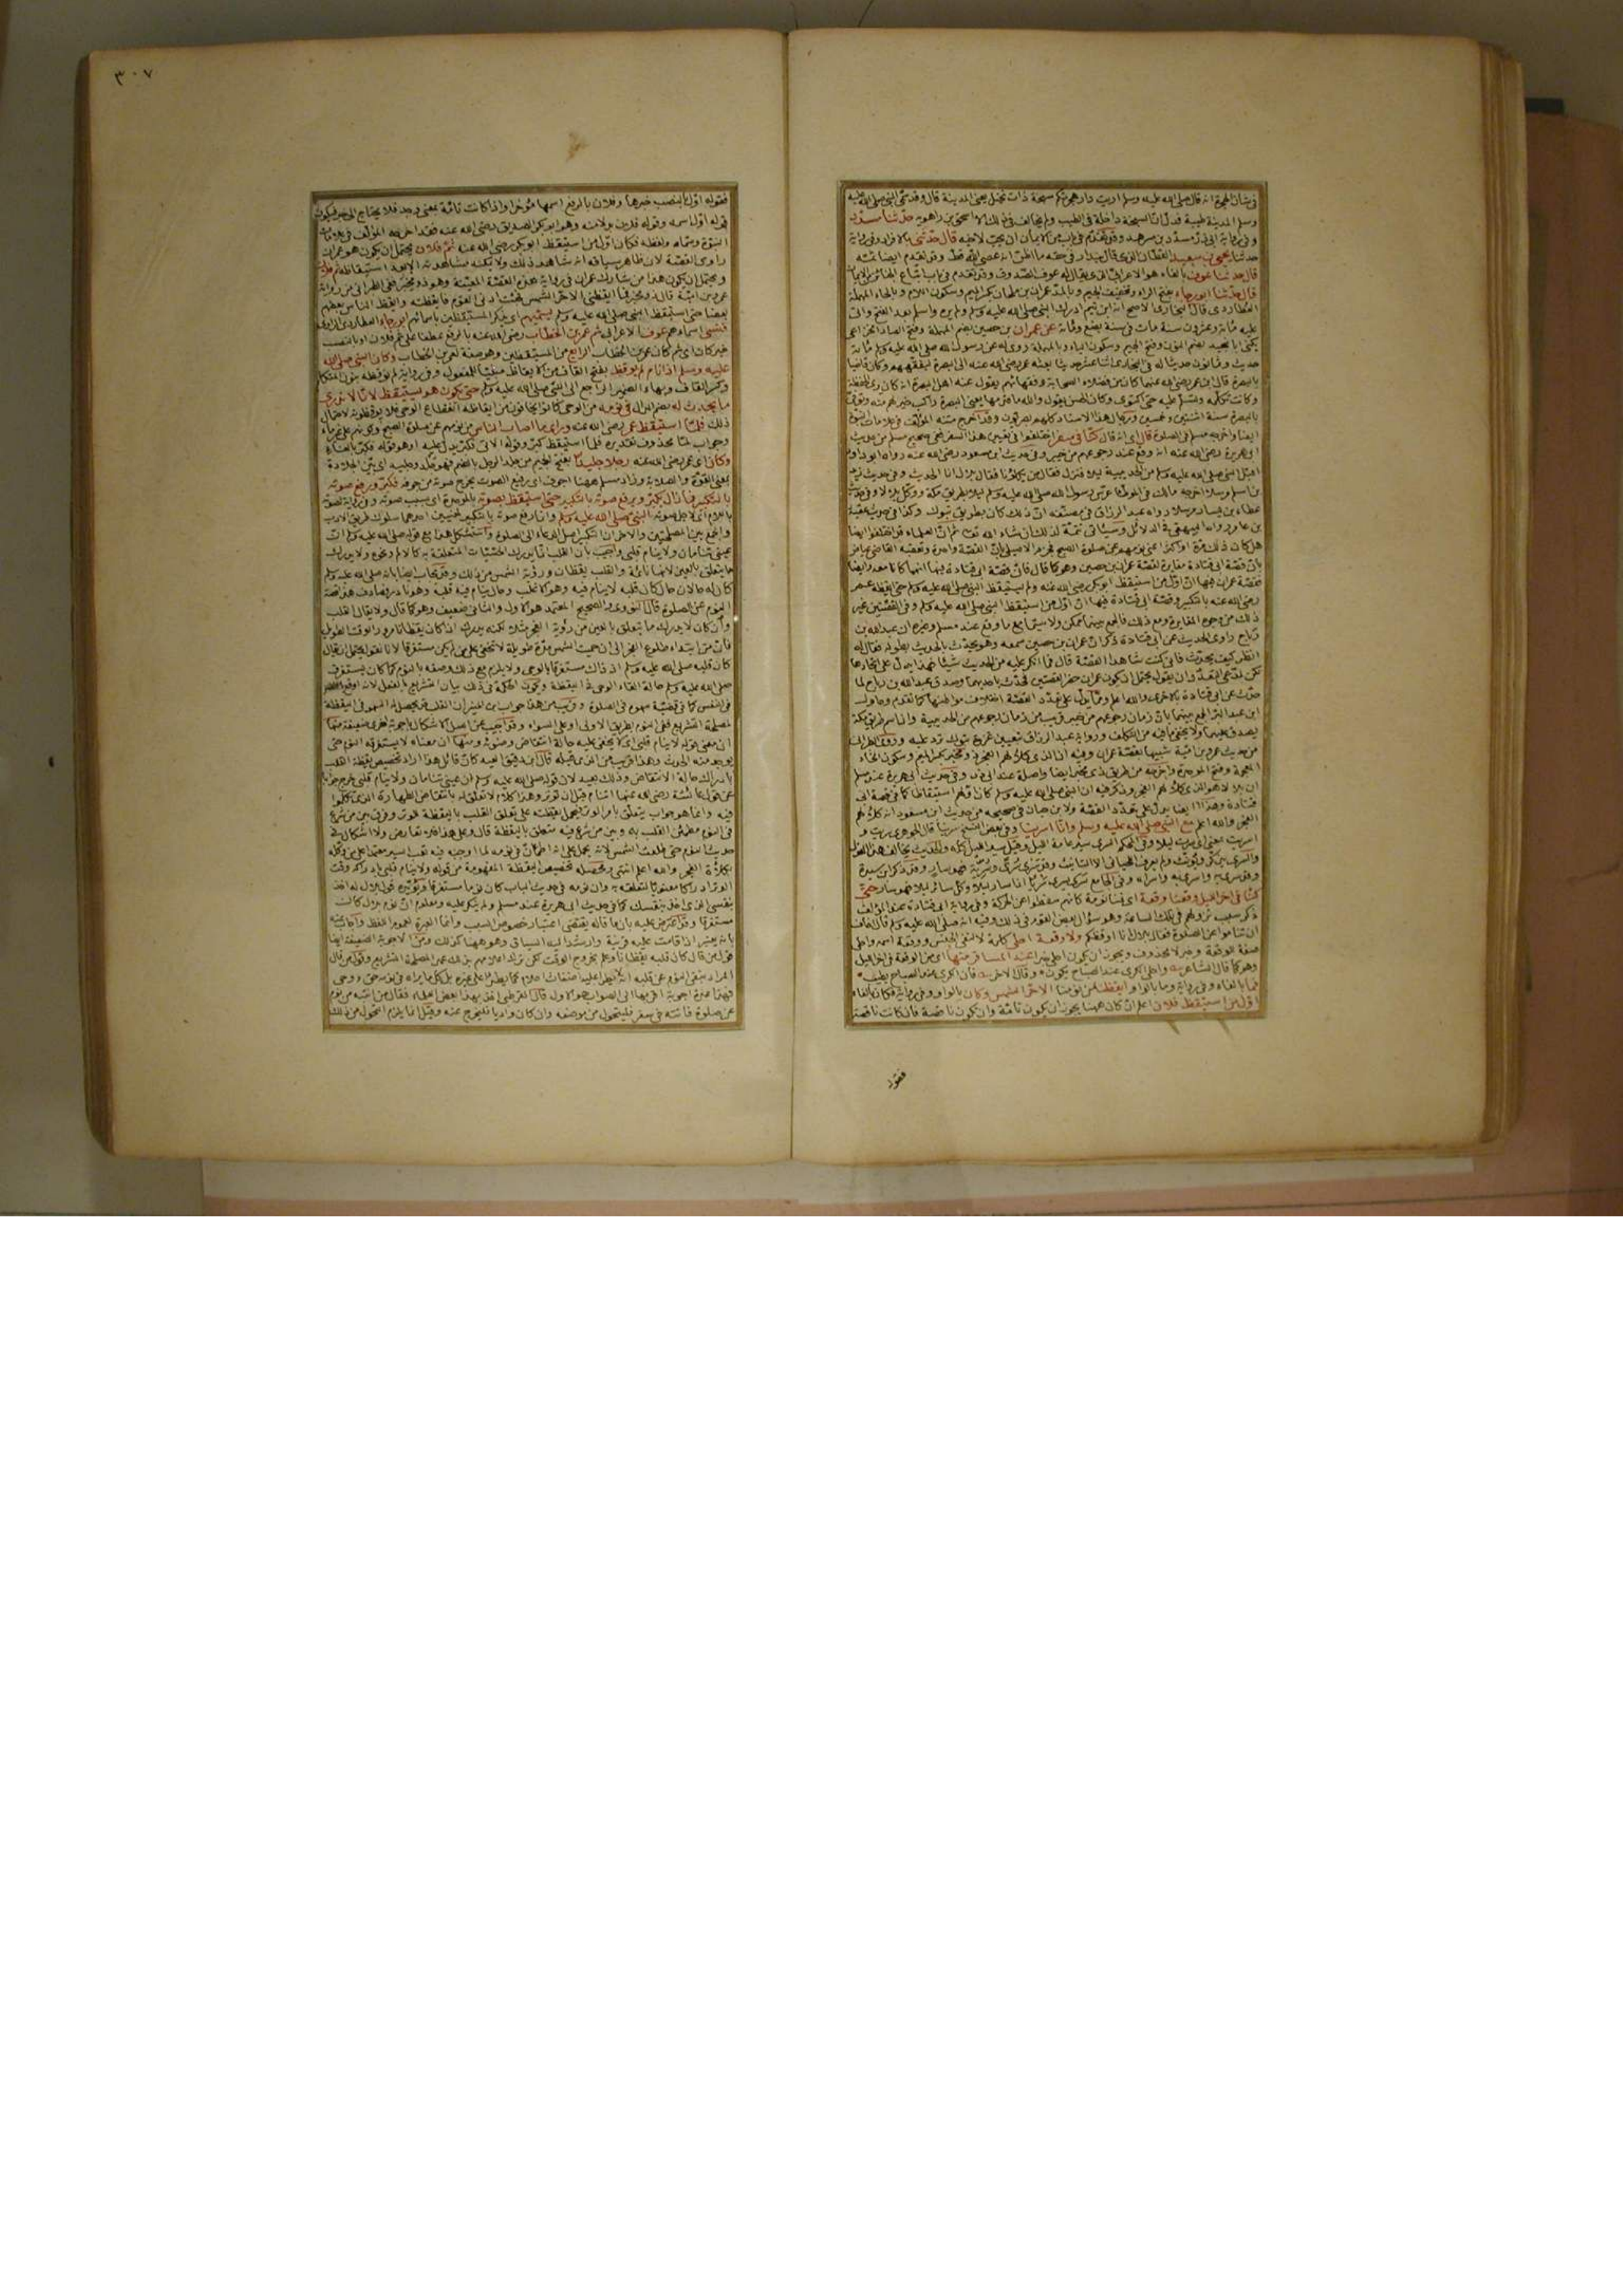 في شأن الهجرة انه قال صلى الله عليه وسلم اريت دار هجرتكم سبخة ذات نخل يعنى المدينة قال وقد سمى النبي صلى الله عليه
وسلم المدينة طيبة فدل ان السبخة داخلة في الطيب ولم يخالف في ذلك الا اسحق بن راهويه حدثنا مسدد
وفي رواية ابى ذر مسدد بن مسرهد وقد تقدم في باب من الايمان ان يحب لاخيه قال حدثنى بالافراد وفي رواية
حدثنا يحيى بن سعيد القطان الذى قال بندار في حقه ما اظن انه عصى الله قط وقد تقدم ايضا ثمه
قال حدثنا عوف بالفاء هو الاعرابى الذى يقال له عوف الصدوق وقد تقدم في باب اتباع الجنائز من الايمان
قال حدثنا ابو رجاء بفتح الراء وتخفيف الجيم وبالمد عمران بن ملحان بكسر الميم وسكون اللام وبالحاء المهملة
العطاردى قال البخارى الاصح انه ابن تيم ادرك النبي صلى الله عليه وسلم ولم يره واسلم بعد الفتح واتى
عليه مائة وعشرون سنة مات في سنة بضع ومائة عن عمران بن حصين بضم المهملة وفتح الصاد
يكنى ابا نجيد بضم النون وفتح الجيم وسكون الياء وبالمهملة روى له عن رسول الله صلى الله عليه وسلم مائة
حديث وثمانون حديثا له في البخارى اثنا عشر حديثا بعثه عمر رضى الله عنه الى البصرة ليفقههم وكان قاضيا
بالبصرة قال ابن عمر رضى الله عنهما كان من فضلاء الصحابة وفقهائهم يقول عنه اهل البصرة انه كان يرى الحفظة
وكانت تكلمه وتسلم عليه حتى اكتوى وكان الحسن يقول والله ما قدمها يعنى البصرة راكب خير لهم منه وتوفى
بالبصرة سنة اثنتين وخمسين ورجال هذا الاسناد كلهم بصريون وقد اخرج متنه المؤلف في علامات النبوة
ايضا واخرجه مسلم في الصلوة قال اى انه قال كنا في سفر اختلفوا في تعيين هذا السفر ففي صحيح مسلم من حديث
ابى هريرة رضى الله عنه انه وقع عند رجوعهم من خيبر وفي حديث ابن مسعود رضى الله عنه رواه ابو داود
اقبل النبي صلى الله عليه وسلم من الحديبية ليلا فنزل فقال من يكلؤنا فقال بلال انا الحديث وفي حديث زيد
بن اسلم مرسلا اخرجه مالك في الموطأ عرس رسول الله صلى الله عليه وسلم ليلا بطريق مكة ووكل بلالا وفي حديث
عطاء بن يسار مرسلا رواه عبد الرزاق في مصنفه ان ذلك كان بطريق تبوك وكذا في حديث عقبة
بن عامر رواه البيهقى في الدلائل وسيأتى تتمة لذلك ان شاء الله تعالى ثم ان العلماء قد اختلفوا ايضا
هل كان ذلك مرة او اكثر اعنى نومهم عن صلوة الصبح فجزم الاصيلى بان القصة واحدة وتعقبه القاضى عياض
بان قصة ابى قتادة مغايرة لقصة عمران بن حصين وهو كما قال فان قصة ابى قتادة فيها انهما كانا معه وايضا
فقصة عمران فيها ان اول من استيقظ ابو بكر رضى الله عنه ولم يستيقظ النبي صلى الله عليه وسلم حتى ايقظه عمر
رضى الله عنه بالتكبير وقصة ابى قتادة فيها ان اول من استيقظ النبي صلى الله عليه وسلم وفي القصتين غير
ذلك من وجوه المغايرة ومع ذلك فالجمع بينهما ممكن ولا سيما مع ما وقع عند مسلم وغيره ان عبد الله بن
رباح راوى الحديث عن ابى قتادة ذكر ان عمران بن حصين سمعه وهو يحدث بالحديث بطوله فقال له
انظر كيف تحدث فانى كنت شاهدا القصة قال فما انكر عليه من الحديث شيئا فهذا يدل على اتحادها
لكن لمدعى التعدد ان يقول يحتمل ان يكون عمران حضر القصتين فحدث باحديهما وصدق عبد الله بن رباح لما
حدث عن ابى قتادة بالاخرى والله اعلم ومما يدل على تعدد القصة اختلاف مواطنها كما تقدم وحاول
ابن عبد البر الجمع بينهما بان زمان رجوعهم من خيبر قريب من زمان رجوعهم من الحديبية وان اسم طريق مكة
يصدق عليهما ولا يخفى ما فيه من التكلف ورواية عبد الرزاق بتعيين غزوة تبوك ترد عليه وروى الطبرانى
من حديث عمرو بن امية شبيها بقصة عمران وفيه ان الذى كلأ لهم الفجر ذو مخبر بكسر الميم وسكون الخاء
المعجمة وفتح الموحدة واخرجه من طريق ذى مخبر ايضا واصله عند ابى داود وفي حديث ابى هريرة عند مسلم
ان بلالا هو الذى كلأ لهم الفجر وذكر فيه ان النبي صلى الله عليه وسلم كان اولهم استيقاظا كما في قصة ابى
قتادة وهذا ايضا يدل على تعدد القصة ولابن حبان في صحيحه من حديث ابن مسعود انه كلأ لهم
الفجر والله اعلم مع النبي صلى الله عليه وسلم وانا اسرينا وفي بعض النسخ سرينا قال الجوهرى سريت و
اسريت بمعنى اذا سرت ليلا وفي المحكم السرى سير عامة الليل وقيل سير الليل كله والحديث يخالف هذا القول
والسرى يذكر ويؤنث ولم يعرف اللحيانى الا التأنيث وقد سرى سرى وسرية فهو سار وقد ذكر ابن سيده
وقد سرى به واسرى به واسراه وفي الجامع سرى يسرى سريا اذا سار ليلا وكل سائر ليلا فهو سار حتى
كنا في اخر الليل وقعنا وقعة اى نمنا نومة كانهم سقطوا عن الحركة وفي رواية ابى قتادة عند المؤلف
ذكر سبب نزولهم في تلك الساعة وهو سؤال بعض القوم في ذلك وفيه انه صلى الله عليه وسلم قال اخاف
ان تناموا عن الصلوة فقال بلال انا اوقظكم ولا وقعة احلى كلمة لا لنفى الجنس ووقعة اسمه واحلى
صفة الوقعة وخبر لا محذوف ويجوز ان يكون احلى خبرا عند المسافر منها اى من الوقعة في اخر الليل
وهو كما قال الشاعر واحلى الكرى عند الصباح يكون وقال الاخر فان الكرى عند الصباح يطيب
فما بالفاء وفي رواية وما بالواو ايقظنا من نومنا الا حر الشمس وكان بالواو وفي رواية فكان بالفاء
اول من استيقظ فلان اعلم ان كان ههنا يجوز ان يكون تامة وان يكون ناقصة فان كانت ناقصة
فقوله
٣٠٧
فقوله اول بالنصب خبرها وفلان بالرفع اسمها مؤخرا واذا كانت تامة بمعنى وجد فلا يحتاج الى خبر فيكون
قوله اول اسمه وقوله فلان بدلا منه وهو ابو بكر الصديق رضى الله عنه فقد اخرجه المؤلف في علامات
النبوة ولفظه فكان اول من استيقظ ابو بكر رضى الله عنه ثم فلان يحتمل ان يكون هو عمران
راوى القصة لان ظاهر سياقه انه شاهد ذلك ولا يمكنه مشاهدته الا بعد استيقاظه ثم فلان
ويحتمل ان يكون هذا من شارك عمران في رواية هذه القصة المعينة وهو ذو مخبر ففي الطبرانى من رواية
عمرو بن امية قال ذو مخبر فما ايقظنى الا حر الشمس فجئت ادنى القوم فايقظته وايقظ الناس بعضهم
بعضا حتى استيقظ النبي صلى الله عليه وسلم يسميهم اى يذكر المستيقظين باسمائهم ابو رجاء العطاردى الراوى
فنسى اسماءهم عوف الاعرابى ثم عمر بن الخطاب رضى الله عنه بالرفع عطفا على ثم فلان او بالنصب
خبر كان اى ثم كان عمر بن الخطاب الرابع من المستيقظين وهو صفة لعمر بن الخطاب وكان النبي صلى الله
عليه وسلم اذا نام لم يوقظ بفتح القاف من الايقاظ مبنيا للمفعول وفي رواية لم نوقظه بنون المتكلم
وكسر القاف وبهاء الضمير الراجع الى النبي صلى الله عليه وسلم حتى يكون هو يستيقظ لانا لا ندرى
ما يحدث له بضم الدال في نومه من الوحى كانوا يخافون من ايقاظه انقطاع الوحى فلا يوقظونه لاحتمال
ذلك فلما استيقظ عمر رضى الله عنه ورأى ما اصاب الناس من نومهم عن صلوة الصبح وهم على غير ماء
وجواب لما محذوف تقديره فلما استيقظ كبر وقوله الاتى فكبر يدل عليه او هو قوله فكبر بالفاء
وكان اى عمر رضى الله عنه رجلا جليدا بفتح الجيم من جلد الرجل بالضم فهو جلد وجليد اى بين الجلادة
بمعنى القوة والصلابة وزاد مسلم ههنا اجوف اى رفيع الصوت يخرج صوته من جوفه فكبر ورفع صوته
بالتكبير فما زال يكبر ويرفع صوته بالتكبير حتى استيقظ بصوته بالموحدة اى بسبب صوته وفي رواية لصوته
باللام اى لاجل صوته النبي صلى الله عليه وسلم وانما رفع صوته بالتكبير لمعنيين احدهما سلوك طريق الادب
والجمع بين المصلحتين والاخر ان التكبير اصل الدعاء الى الصلوة واستشكل هذا مع قوله صلى الله عليه وسلم ان
عينى تنامان ولا ينام قلبى واجيب بان القلب انما يدرك الحسيات المتعلقة به كالالم ونحوه ولا يدرك
ما يتعلق بالعين لانها نائمة والقلب يقظان ورؤية الشمس من ذلك وقد يجاب ايضا بانه صلى الله عليه وسلم
كان له حالان حال كان قلبه لا ينام فيه وهو الاغلب وحال ينام فيه قلبه وهو نادر فصادف هذا قصة
النوم عن الصلوة قال النووى والصحيح المعتمد هو الاول والثانى ضعيف وهو كما قال ولا يقال القلب
وان كان لا يدرك ما يتعلق بالعين من رؤية الفجر مثلا لكنه يدرك اذا كان يقظانا مرور الوقت الطويل
فان من ابتداء طلوع الفجر الى ان حميت الشمس مدة طويلة لا تخفى على من لم يكن مستغرقا لانا نقول يحتمل ان يقال
كان قلبه صلى الله عليه وسلم اذ ذاك مستغرقا بالوحى ولا يلزم مع ذلك وصفه بالنوم كما كان يستغرق
صلى الله عليه وسلم حالة القاء الوحى في اليقظة وتكون الحكمة في ذلك بيان التشريع بالفعل لانه اوقع
في النفس كما في قضية سهوه في الصلوة وقريب من هذا جواب ابن المنير ان القلب قد يحصل له السهو في اليقظة
لمصلحة التشريع ففي النوم بطريق الاولى او على السواء وقد اجيب عن اصل الاشكال باجوبة اخرى ضعيفة منها
ان معنى قوله لا ينام قلبى اى لا يخفى عليه حالة انتقاض وضوئه ومنها ان معناه لا يستغرقه النوم حتى
يوجد منه الحدث وهذا قريب من الذى قبله قال ابن دقيق العيد كان قائل هذا اراد تخصيص يقظة القلب
بادراك حالة الانتقاض وذلك بعيد لان قوله صلى الله عليه وسلم ان عينى تنامان ولا ينام قلبى خرج جوابا
عن قول عائشة رضى الله عنها اتنام قبل ان توتر وهذا كلام لا تعلق له بانتقاض الطهارة الذى تكلموا
فيه وانما هو جواب يتعلق بامر الوتر فيحمل يقظته على تعلق القلب باليقظة للوتر وفرق بين من شرع
في النوم مطمئن القلب به وبين من شرع فيه متعلقا باليقظة قال وعلى هذا فلا تعارض ولا اشكال في
حديث النوم حتى طلعت الشمس لانه يحمل على انه اطمأن في نومه لما اوجبه فيه تعب السير معتمدا على من وكله
بكلاءة الفجر والله اعلم انتهى ومحصله تخصيص اليقظة المفهومة من قوله ولا ينام قلبى بادراكه وقت
الوتر ادراكا معنويا لتعلقه به وان نومه في حديث الباب كان نوما مستغرقا ويؤيده قول بلال له اخذ
بنفسى الذى اخذ بنفسك كما في حديث ابى هريرة عند مسلم ولم ينكر عليه ومعلوم ان نوم بلال كان
مستغرقا وقد اعترض عليه بان ما قاله يقتضى اعتبار خصوص السبب وانما العبرة لعموم اللفظ واجاب عنه
بانه يعتبر اذا قامت عليه قرينة وارشد اليه السياق وهو ههنا كذلك ومن الاجوبة الضعيفة ايضا
قول من قال كان قلبه يقظانا وعلم بخروج الوقت لكن ترك اعلامهم بذلك عمدا لمصلحة التشريع وقول من قال
المراد بنفى النوم عن قلبه انه لا يطرأ عليه اضغاث احلام كما يطرأ على غيره بل كل ما يراه في نومه حق ووحى
فهذه عدة اجوبة اقربها الى الصواب هو الاول قال القرطبى اخذ بهذا بعض العلماء فقال من انتبه من نوم
عن صلوة فاتته في سفر فليتحول من موضعه وان كان واديا فليخرج عنه وقيل انما يلزم التحول من ذلك